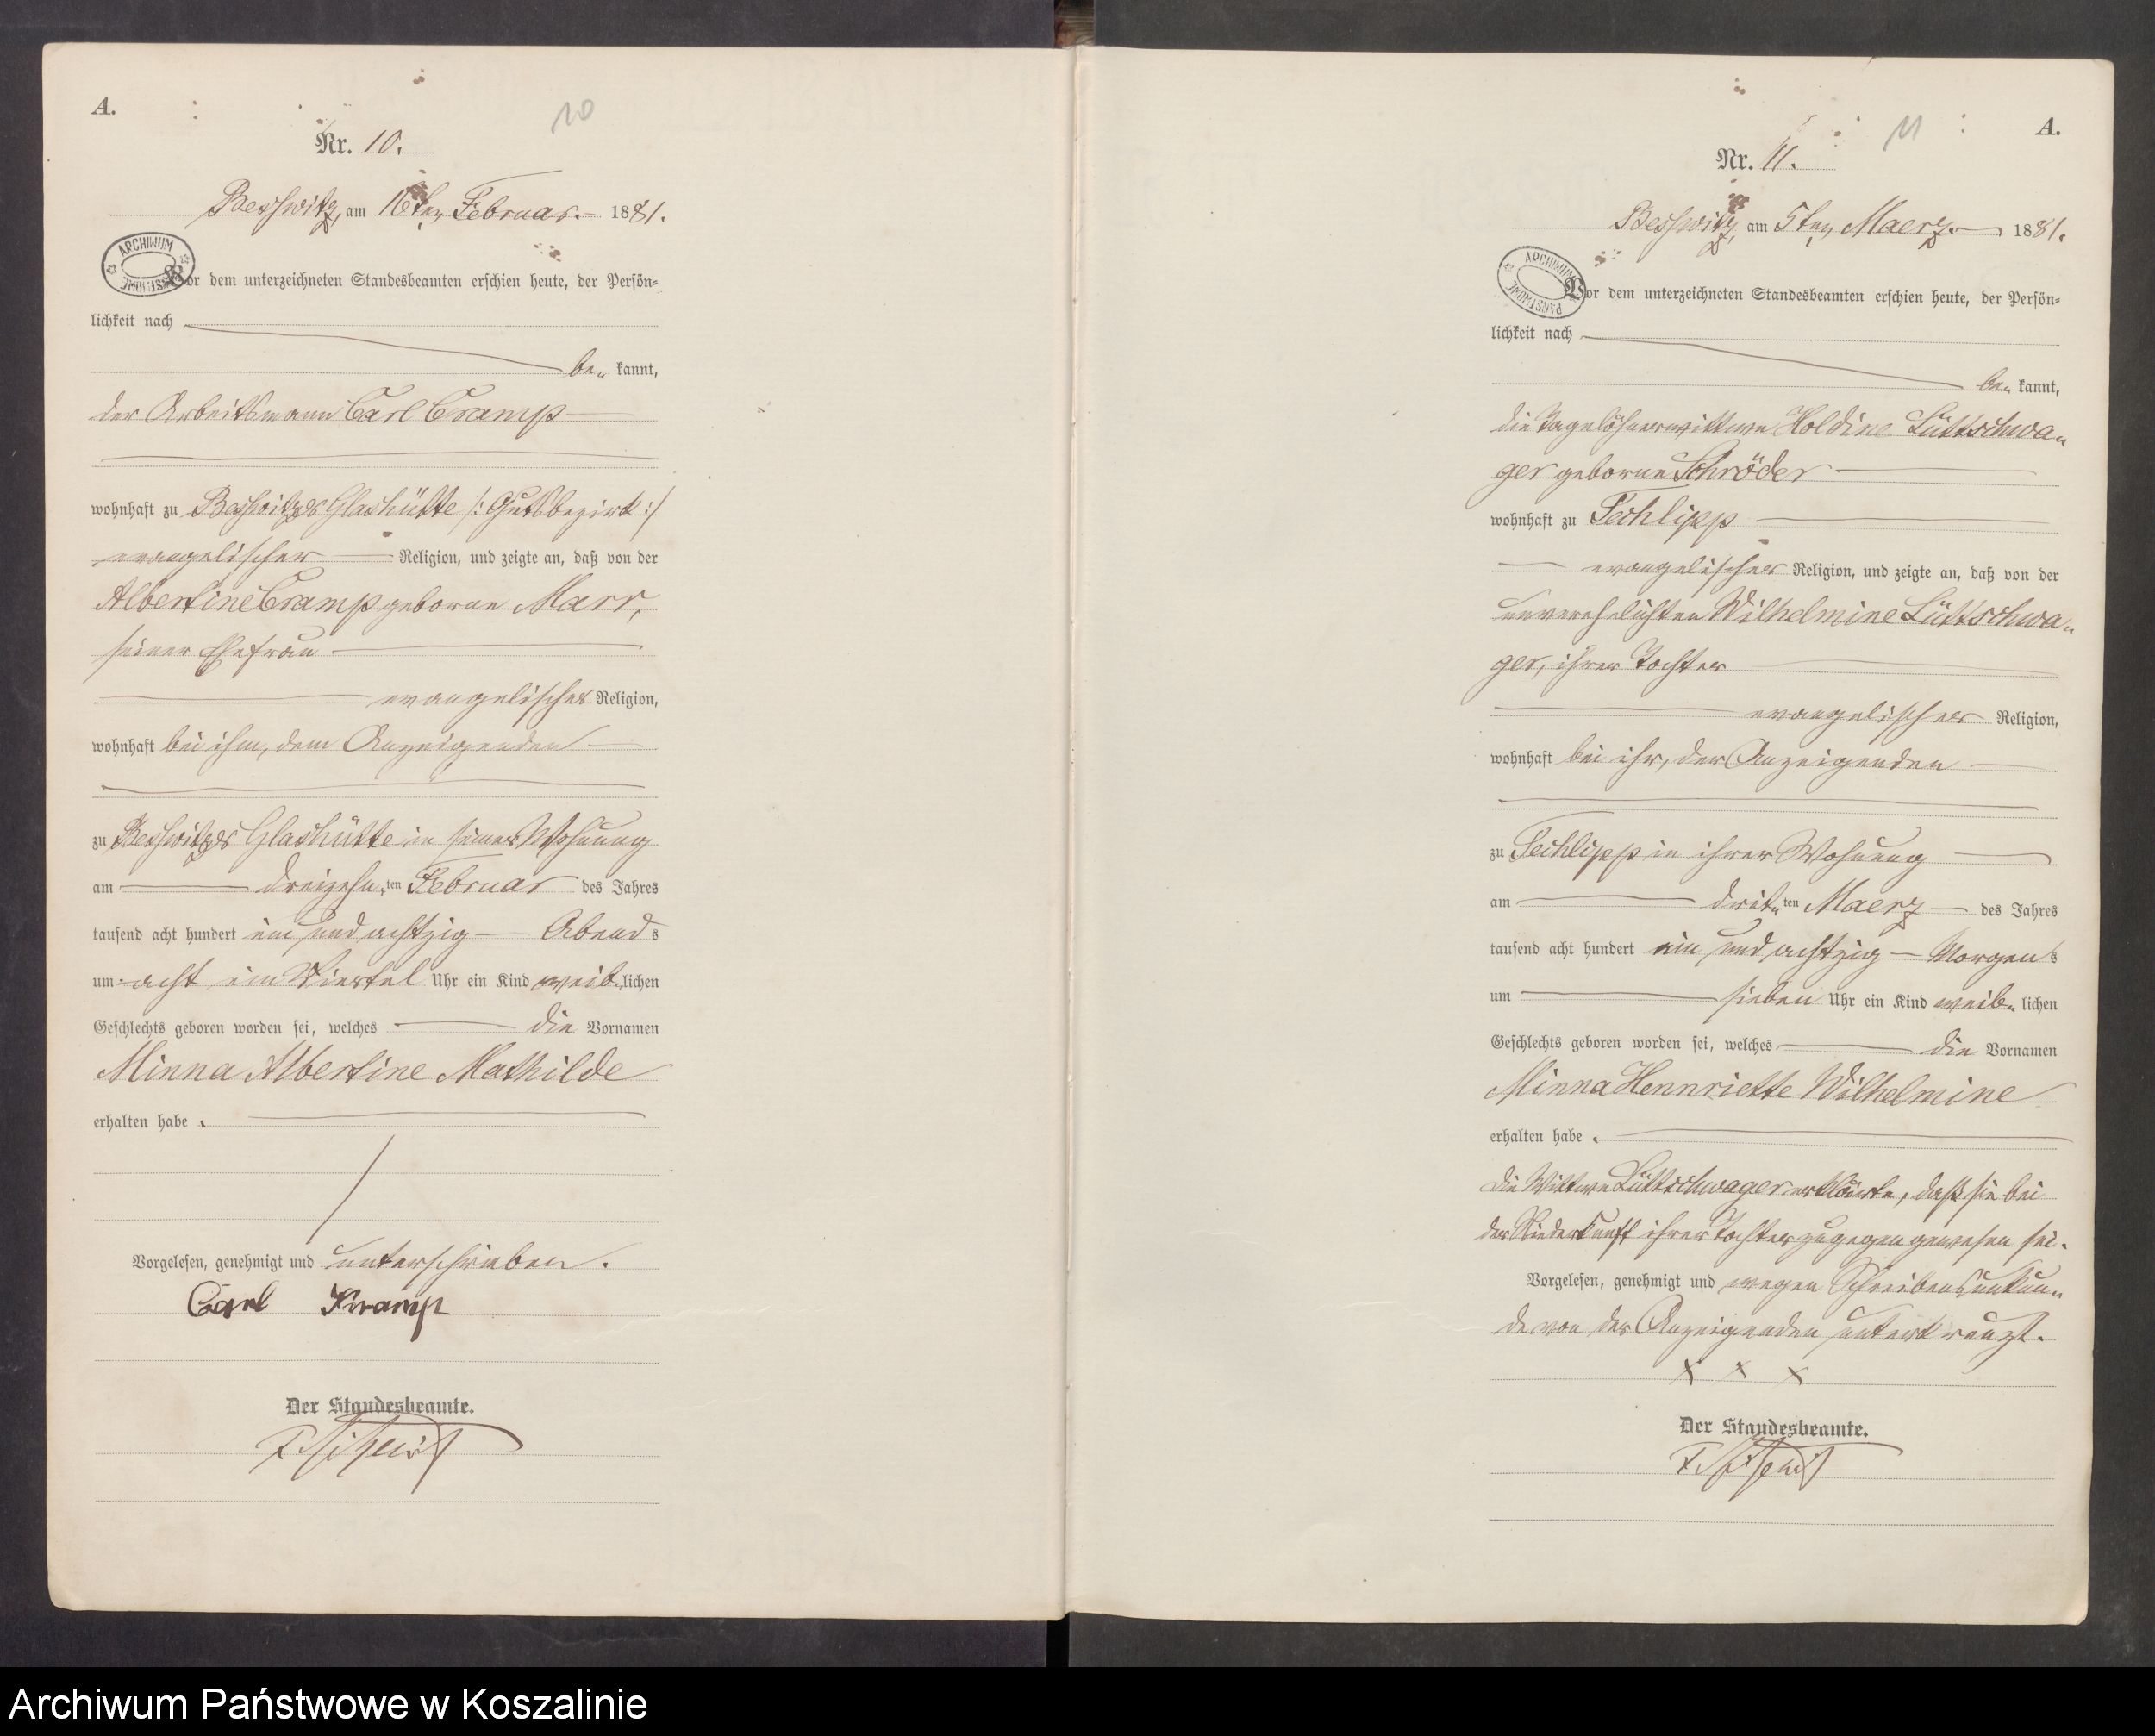 A.
10
Nr. 10.
Besswitz, am 16ten Februar. 1881.
ARCHIWUM PAŃSTWOWE
Vor dem unterzeichneten Standesbeamten erschien heute, der Persön-
lichkeit nach
be- kannt,
der Arbeitsmann Carl Cramp
wohnhaft zu Besswitzer Glashütte /: Gutsbezirk :/
evangelischer Religion, und zeigte an, daß von der
Albertine Cramp geborne Marr,
seiner Ehefrau
evangelischer Religion,
wohnhaft bei ihm, dem Anzeigenden
zu Besswitzer Glashütte in seiner Wohnung
am dreizehn-ten Februar des Jahres
tausend acht hundert ein und achtzig Abends
um acht ein Viertel Uhr ein Kind weib-lichen
Geschlechts geboren worden sei, welches die Vornamen
Minna Albertine Mathilde
erhalten habe.
Vorgelesen, genehmigt und unterschrieben.
Carl Kramp
Der Standesbeamte.
11
A.
Nr. 11.
Besswitz, am 5ten Maerz. 1881.
ARCHIWUM PAŃSTWOWE
Vor dem unterzeichneten Standesbeamten erschien heute, der Persön-
lichkeit nach
be- kannt,
die Tagelöhnerwittwe Holdine Lüttschwa-
ger geborne Schröder
wohnhaft zu Techlipp
evangelischer Religion, und zeigte an, daß von der
unverehelichten Wilhelmine Lüttschwa-
ger, ihrer Tochter
evangelischer Religion,
wohnhaft bei ihr, der Anzeigenden
zu Techlipp in ihrer Wohnung
am drit-ten Maerz des Jahres
tausend acht hundert ein und achtzig Morgens
um sieben Uhr ein Kind weib- lichen
Geschlechts geboren worden sei, welches die Vornamen
Minna Hennriette Wilhelmine
erhalten habe.
Die Wittwe Lüttschwager erklärte, daß sie bei
der Niederkunft ihrer Tochter zugegen gewesen sei.
Vorgelesen, genehmigt und wegen Schreibensunkun-
de von der Anzeigenden unterkreuzt.
x x x
Der Standesbeamte.
Archiwum Państwowe w Koszalinie